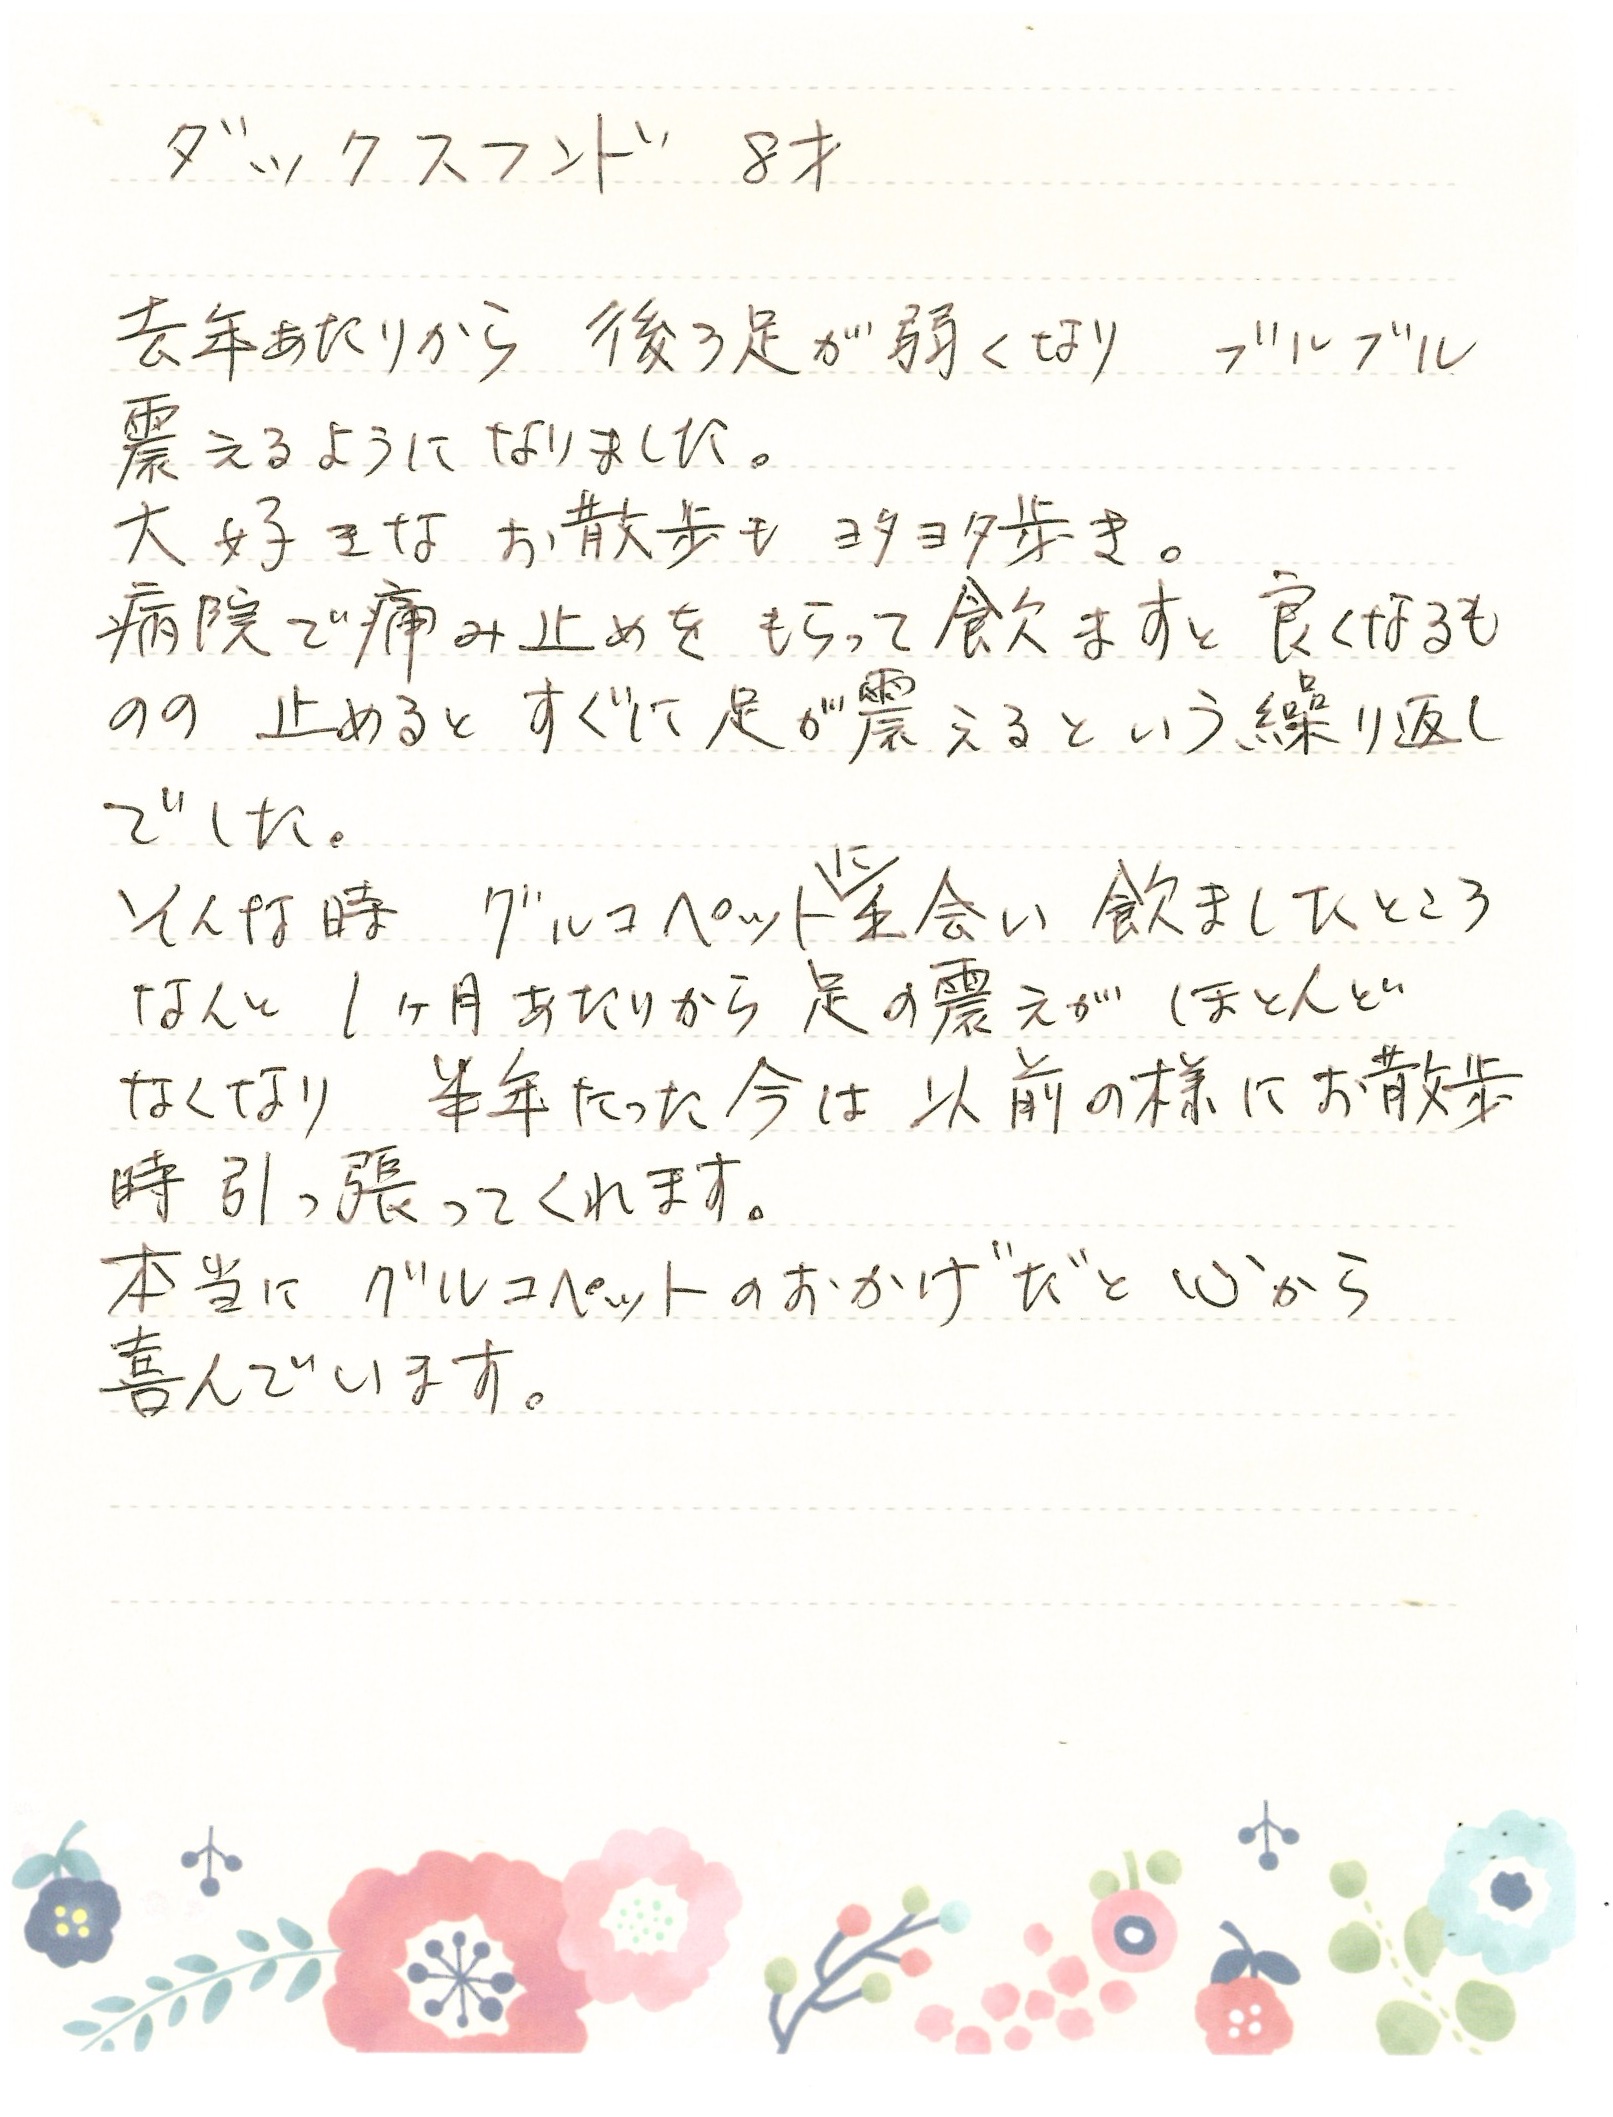 ダックスフンド 8才
去年あたりから 後ろ足が弱くなり ブルブル
震えるようになりました。
大好きな お散歩も ヨタヨタ歩き。
病院で痛み止めを もらって飲ますと 良くなるも
のの 止めると すぐに足が震えるという繰り返し
でした。
そんな時 グルコペットに出会い 飲ましたところ
なんと 1ヶ月あたりから 足の震えが ほとんど
なくなり 半年たった今は 以前の様にお散歩
時引っ張ってくれます。
本当に グルコペットのおかげだと 心から
喜んでいます。